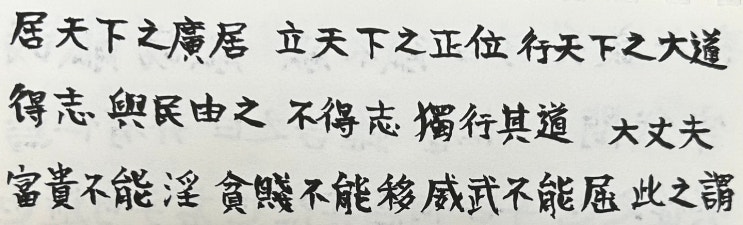 居天下之廣居 立天下之正位 行天下之大道
得志 與民由之 不得志 獨行其道 大丈夫
富貴不能淫 貧賤不能移 威武不能屈 此之謂